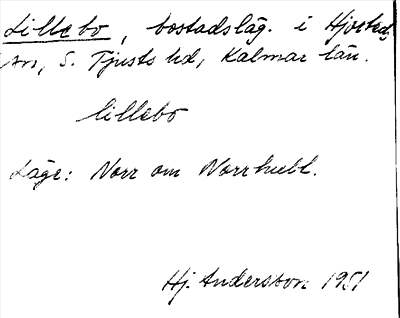 Lillebo, bostadsläg. i Hjorted
sn, S. Tjusts hd, Kalmar län.
lillebo
Läge: Norr om Norrhult.
Hj. Andersson 1951